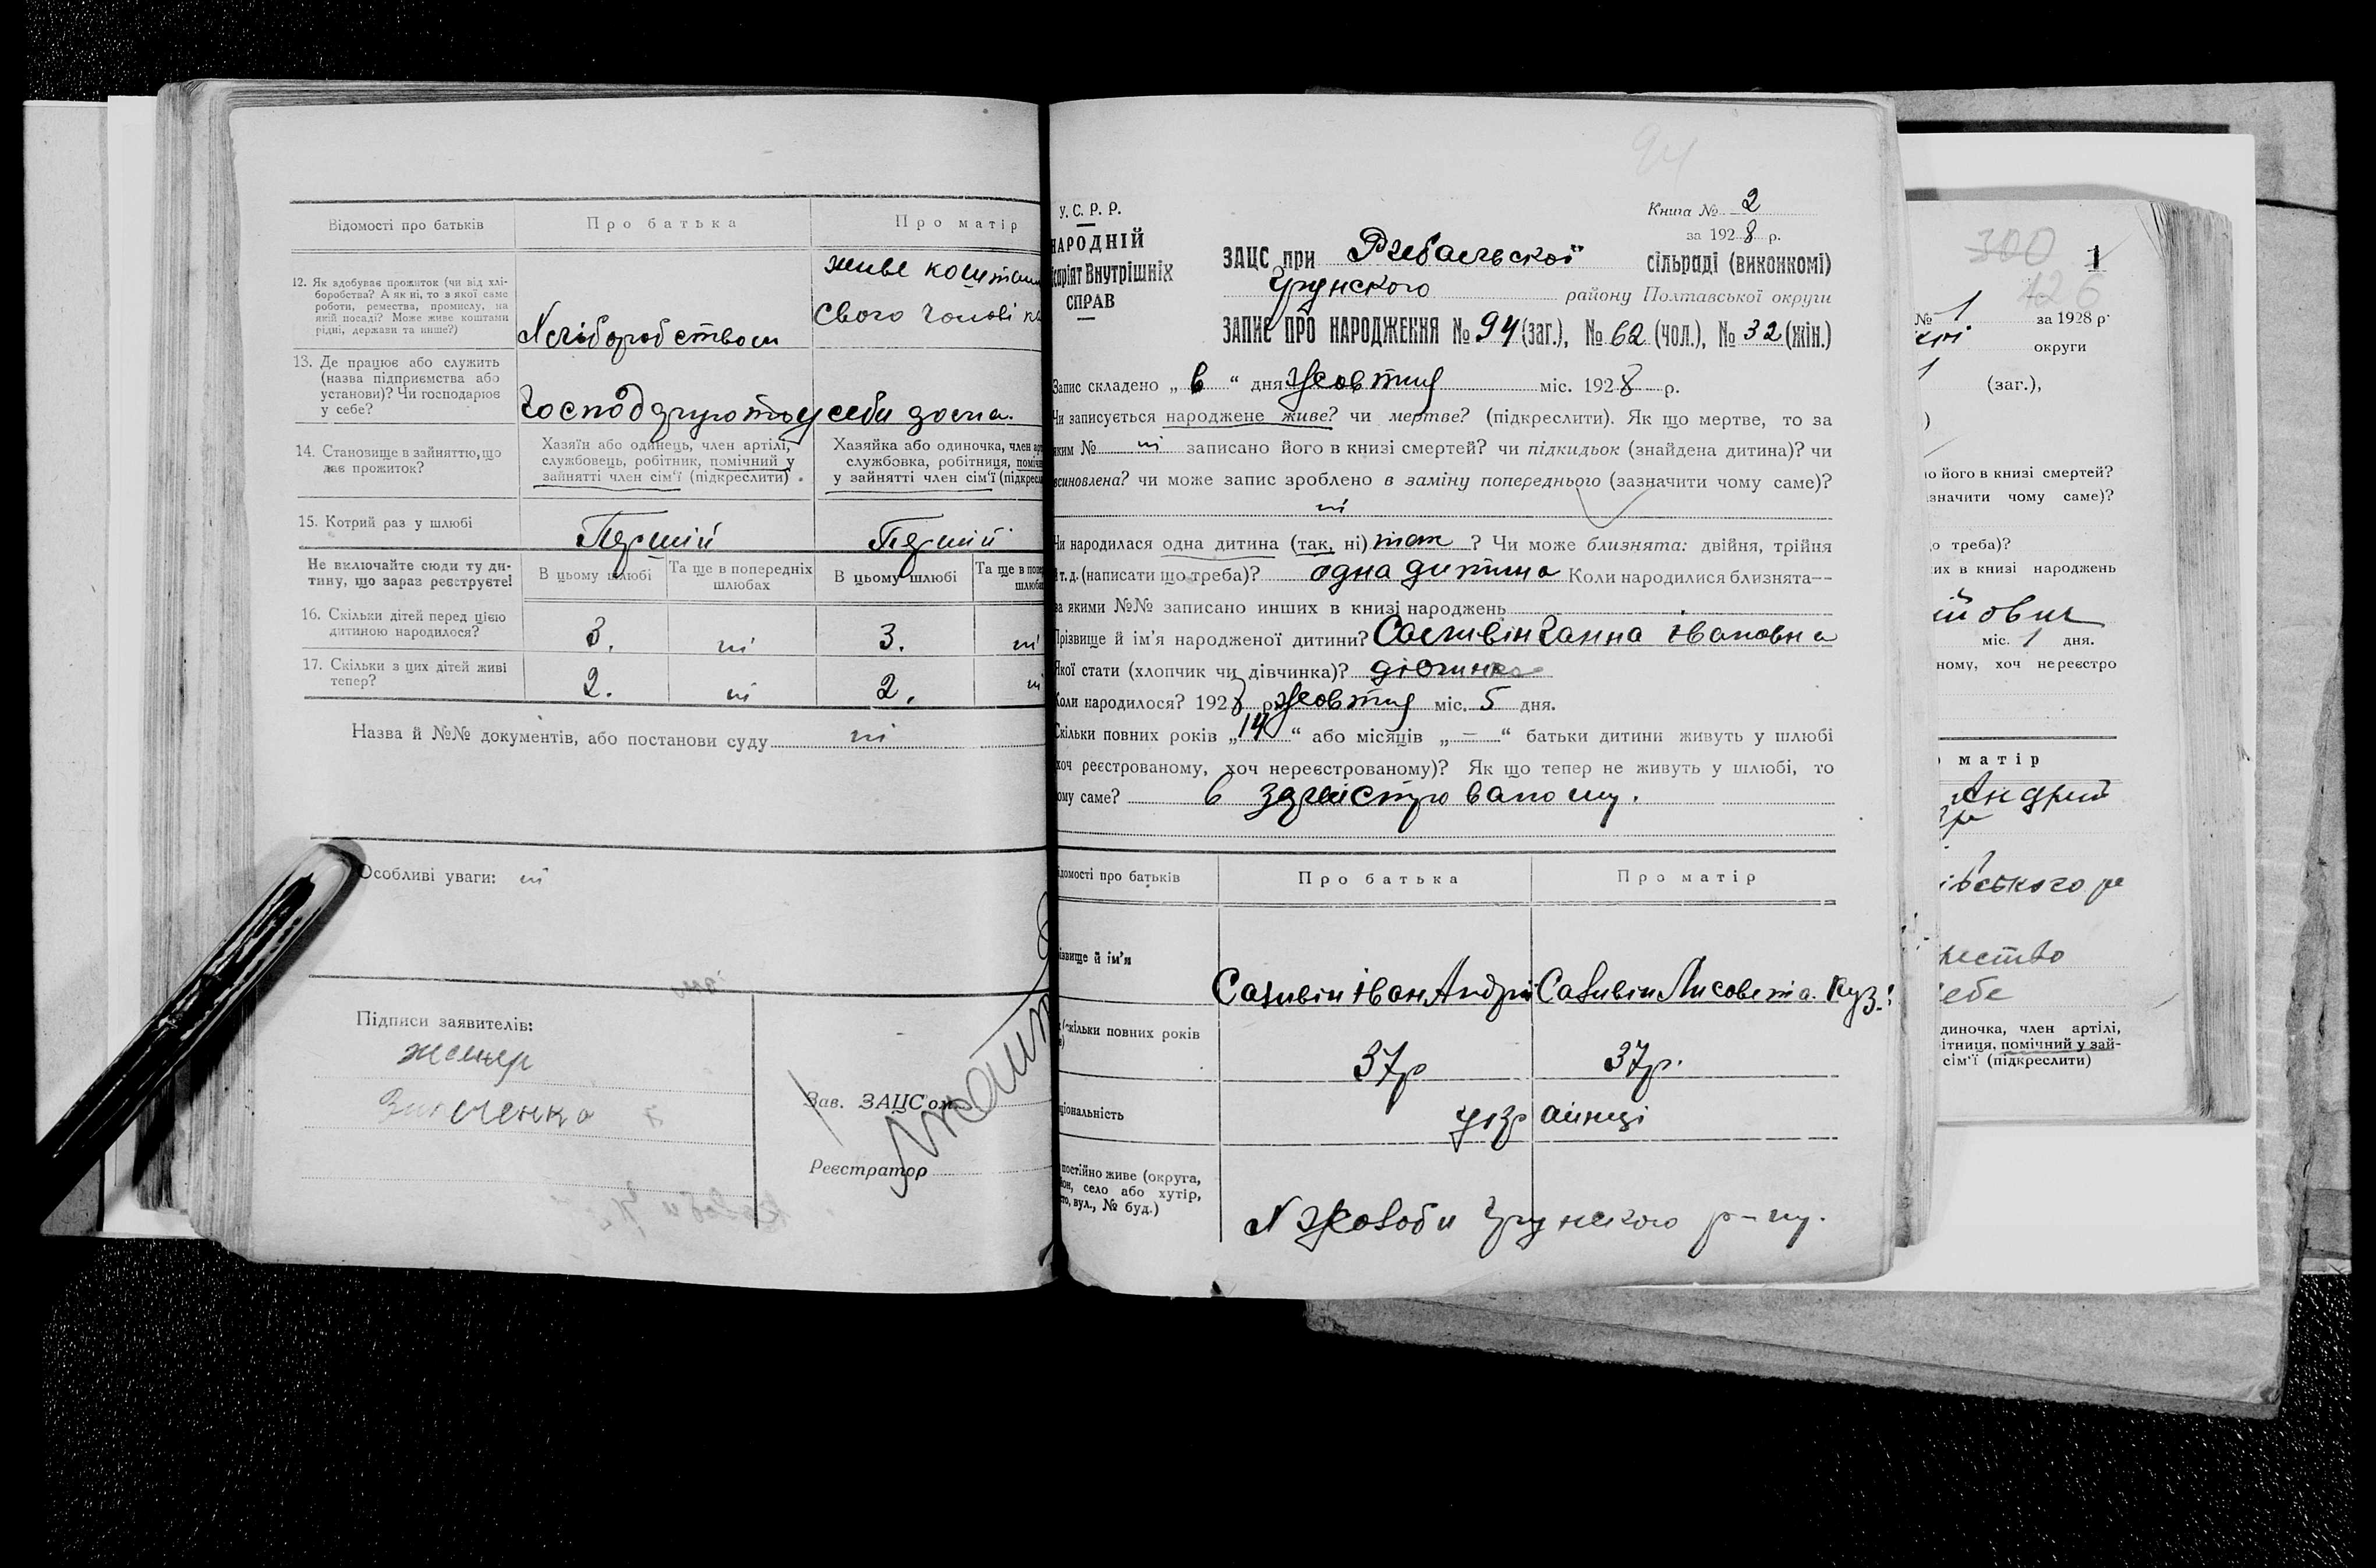 Відомості про батьків
Про батька
Про матір
12. Як здобуває прожиток (чи від хлі-
боробства? А як ні, то з якої саме
роботи, ремества, промислу, на
якій посаді? Може живе коштами
рідні, держави та инше?)
Хліборобством
живе коштам
свого чолові
13. Де працює або служить
(назва підприємства або
установи)? Чи господарює
у себе?
Господарюють у себи дома.
14. Становище в зайняттю, що
дає прожиток?
Хазяїн або одинець, член артілі,
службовець, робітник, помічний у
зайнятті член сім'ї (підкреслити).
Хазяйка або одиночка, член арт
службовка, робітниця, поміч
у зайнятті член сім'ї (підкресл
15. Котрий раз у шлюбі
Перший
Перший
Не включайте сюди ту ди-
тину, що зараз реєструєте!
В цьому шлюбі
Та ще в попередніх
шлюбах
В цьому шлюбі
Та ще в попе
шлюба
16. Скільки дітей перед цією
дитиною народилося?
3. ні 3. ні
17. Скільки з цих дітей живі
тепер?
2. ні 2. ні
Назва й №№ документів, або постанови суду ні
Особливі уваги: ні
Підписи заявителів:
Зав. ЗАЦС'ом
Реєстратор
94
У.С.Р.Р.
НАРОДНІЙ
саріят Внутрішніх
СПРАВ
Книга № 2
за 1928 р.
ЗАЦС при Рибальської сільраді (виконкомі)
Грунського району Полтавської округи
ЗАПИС ПРО НАРОДЖЕННЯ № 94 (заг.), № 62 (чол.), № 32 (жін.)
Запис складено „ 6 “ дня Жовтня міс. 1928 р.
Чи записується народжене живе? чи мертве? (підкреслити). Як що мертве, то за
яким № ні записано його в книзі смертей? чи підкидьок (знайдена дитина)? чи
всиновлена? чи може запис зроблено в заміну попереднього (зазначити чому саме)?
ні
Чи народилася одна дитина (так, ні) так ? Чи може близнята: двійня, трійня
і т. д. (написати що треба)? одна дитина Коли народилися близнята—
за якими №№ записано инших в книзі народжень
Прізвище й ім'я народженої дитини? Саливін Ганна Івановна
Якої стати (хлопчик чи дівчинка)? дівчинка
Коли народилося? 1928 р. Жовтня міс. 5 дня.
Скільки повних років „ 14 “ або місяців „ — “ батьки дитини живуть у шлюбі
хоч реєстрованому, хоч нереєстрованому)? Як що тепер не живуть у шлюбі, то
ому саме? в
відомості про батьків
Про батька
Про матір
ізвище й ім'я
Саливін Іван Андрі
Саливін Лисовета Куз.
скільки повних років
37р
37р.
ціональність
українці
постійно живе (округа,
йон, село або хутір,
сто, вул., № буд.)
Грунского р-ну.
300
1
126
№ 1 за 1928 р.
округи
(заг.),
)
но його в книзі смертей?
азначити чому саме)?
о треба)?
их в книзі народжень
йович
міс. 1 дня.
ному, хоч нереєстро
о матір
Андрий
івського
ебе
диночка, член артілі,
ітниця, помічний у зай-
сім'ї (підкреслити)